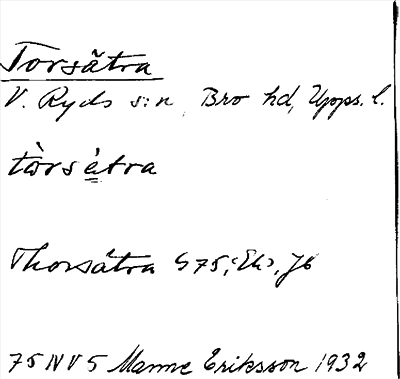 Torsätra
V. Ryds s:n Bro hd, Upps. l.
tòrsètra
Thorsätra G 75, Ek, Jb
75 NV 5 Manne Eriksson 1932